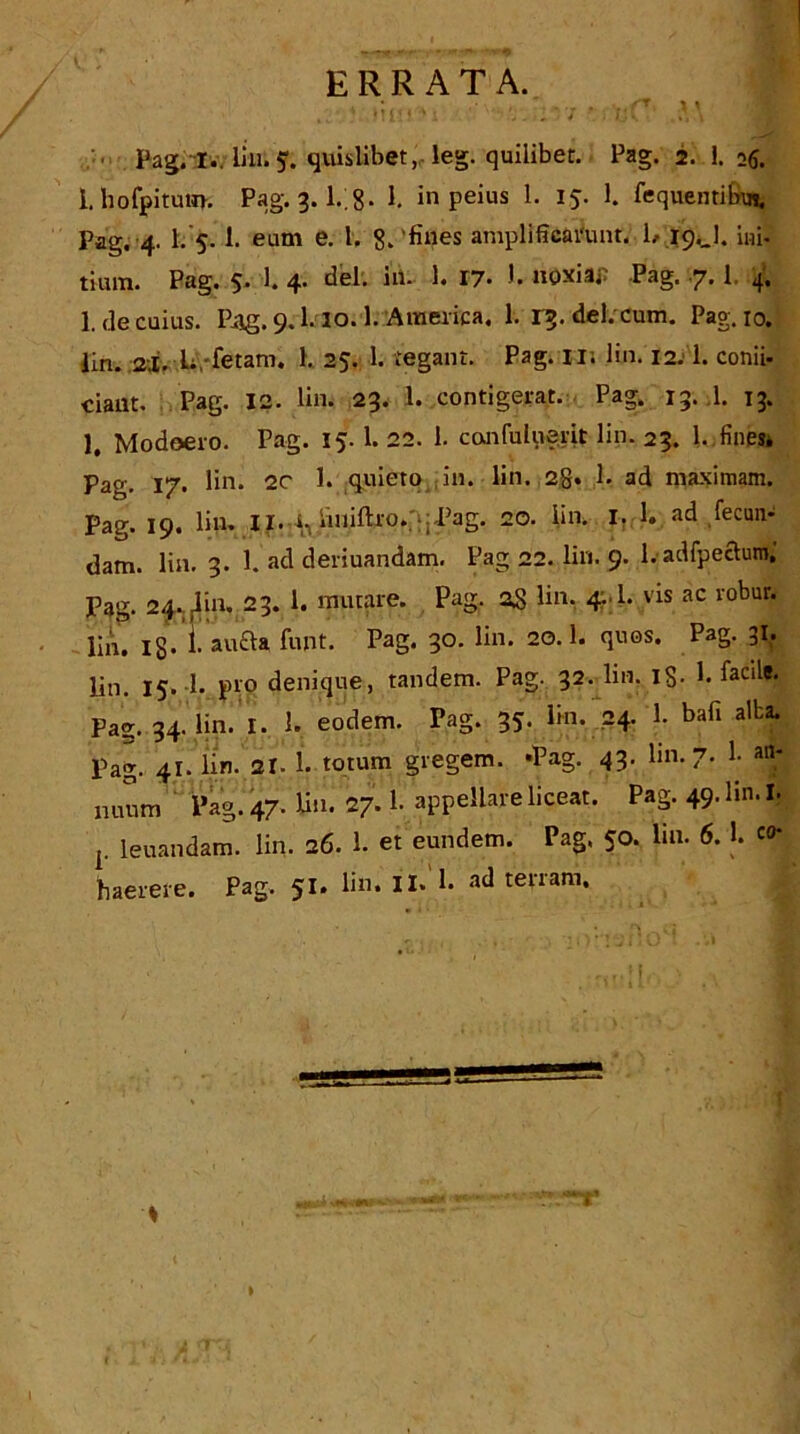 ERRATA.
Pag. 1. lin. 5. quislibet, leg. quilibet. Pag. 2. l. 26.
l. hoſpitum. Pag. 3. l. 8. l. in peius l. 15. l. ſequentibus.
Pag. 4. l. 5. l. eum e. l. 8. fines amplificarunt. l. 19. l. ini-
tium. Pag. 5. l. 4. del. in. l. 17. l. noxia. Pag. 7. l. 4.
l. de cuius. Pag. 9. l. 10. l. America. l. 13. del. cum. Pag. 10.
lin. 21. l. fetam. l. 25. l. tegant. Pag. 11. lin. 12. l. conii-
ciant. Pag. 12. lin. 23. l. contigerat. Pag. 13. l. 13.
l. Modoero. Pag. 15. l. 22. l. conſuluerit lin. 23. l. fines.
Pag. 17. lin. 20 l. quieto in. lin. 28. l. ad maximam.
Pag. 19. lin. 11. ſiniſtro. Pag. 20. lin. 1. l. ad ſecun-
dam. lin. 3. l. ad deriuandam. Pag 22. lin. 9. l. adſpectum.
Pag. 24. lin. 23. l. mutare. Pag. 28 lin. 4. l. vis ac robur.
lin. 18. l. aucta ſunt. Pag. 30. lin. 20. l. quos. Pag. 31.
lin. 15. l. pro denique, tandem. Pag. 32. lin. 18. l. facile.
Pag. 34. lin. 1. l. eodem. Pag. 35. lin. 24. l. baſi alba.
Pag. 41. lin. 21. l. totum gregem. Pag. 43. lin. 7. l. an-
nuum Pag. 47. lin. 27. l. appellare liceat. Pag. 49. lin. 1.
l. leuandam. lin. 26. l. et eundem. Pag. 50. lin. 6. l. co-
haerere. Pag. 51. lin. 11. l. ad terram.